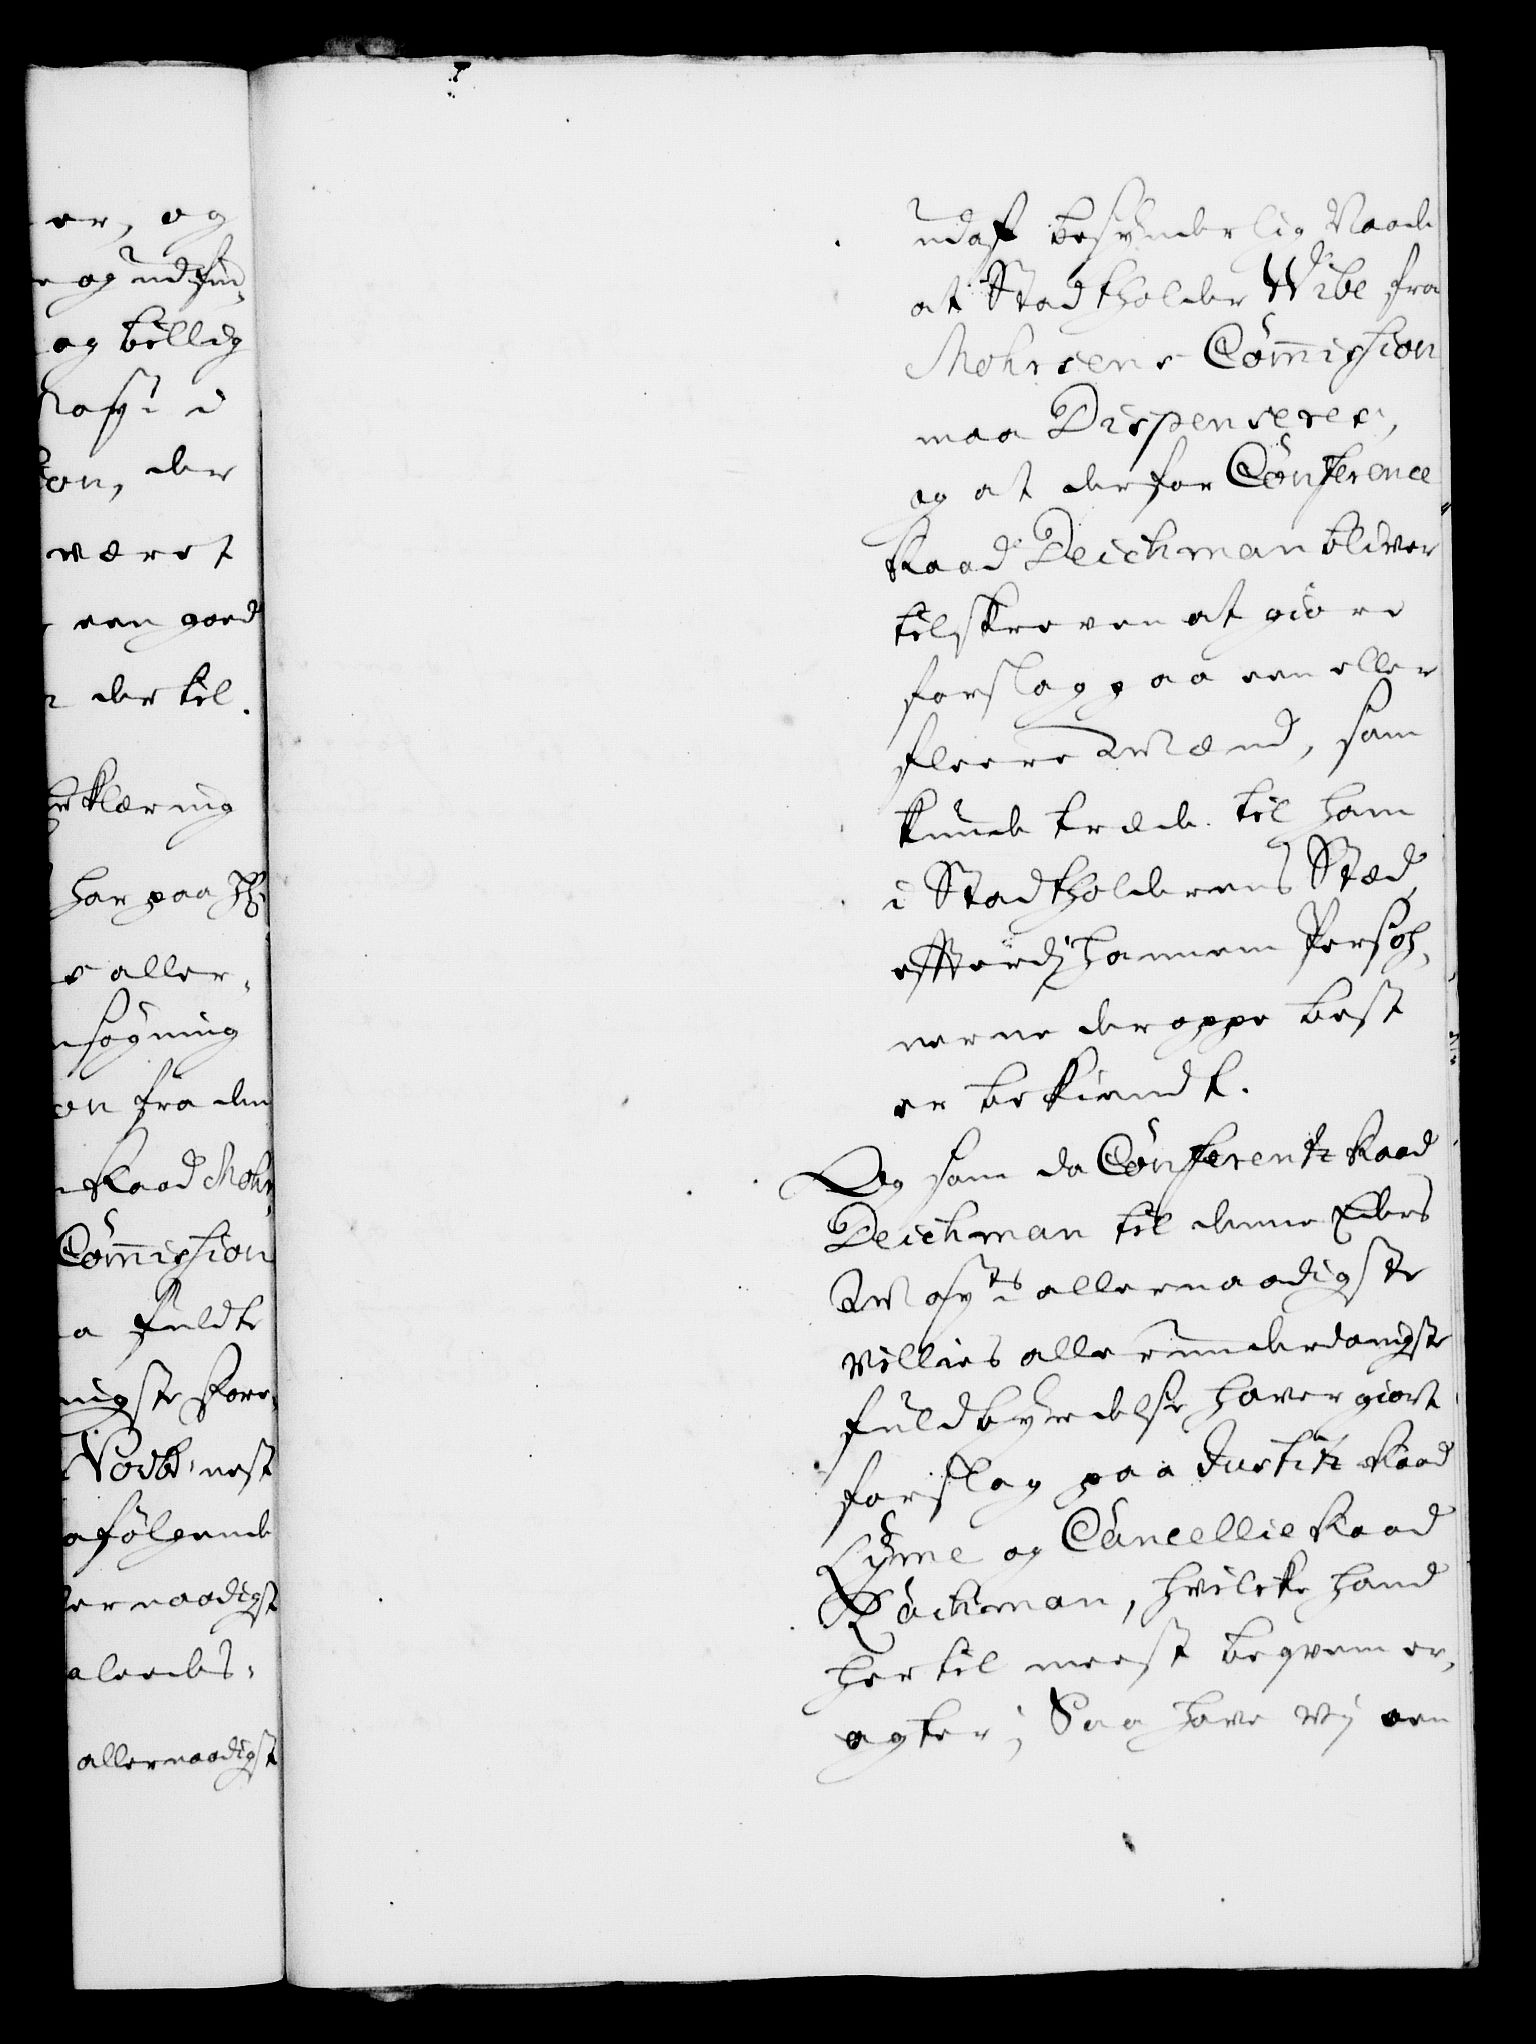 er, og
e og udfin-
og billig
Mayt i
on, der
været
een goed
dertil.
Erklæring
har paa
aller-
nsøgning
on fra den
Raad Mohr
Commission
a fuldte
nigste Fore-
Notb: nest
afølgende
ernaadigst
aleedes.
allernaadigst
udaf besynderlig Naade
at Stadtholder Wibe fra
Mohrsens Commission
maa Dispenseres,
og at derfor Conference
Raad Deichman bliver
tilskreven at giøre
forslag paa een eller
fleere Mænd, som
kunde træde til ham
i Stadtholderens Stæd,
efterdj hannem Persoh-
nerne deroppe best
er bekiendt.
Og som da Conferentz Raad
Deichman til denne Eders
Mayts allernaadigste
Villies allerunderdanigste
fuldbyrdelse haver giort
forslag paa Justitz Raad
Lyme og Cancellie Raad
Röckman, hvilcke hand
hertil meest beqvem er-
agter; Saa have Vj een